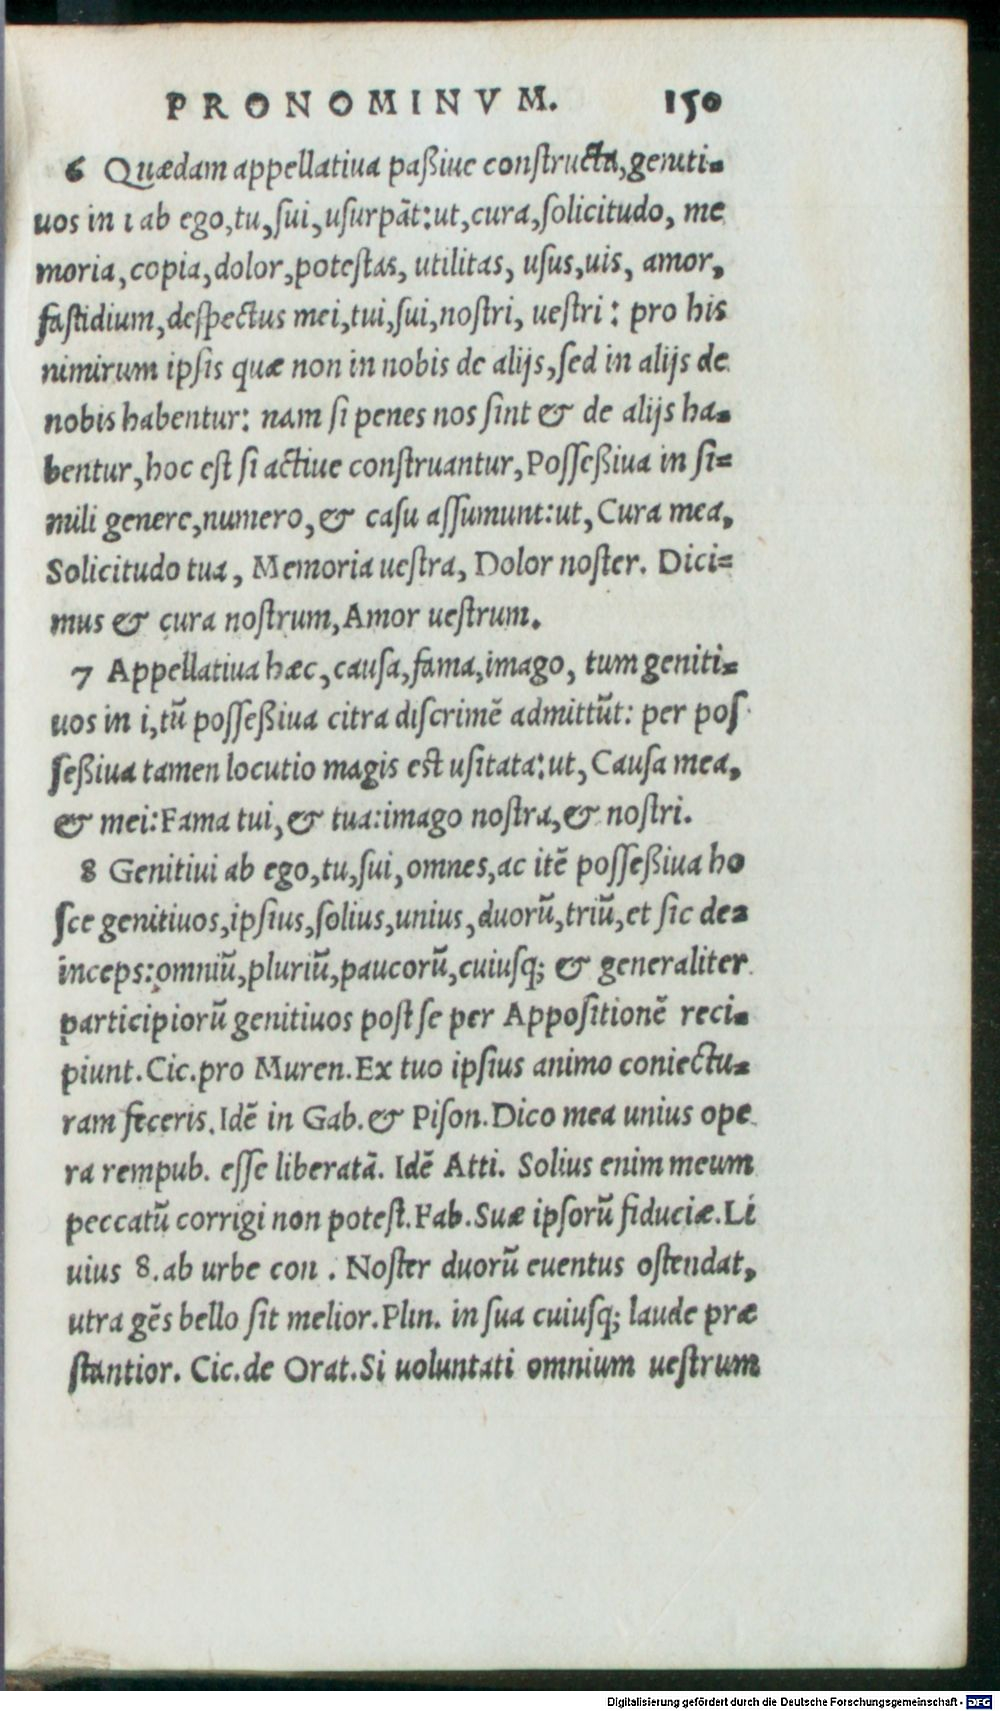 PRONOMINVM. 150
6 Quædam appellatiua paßiue constructa, geniti-
uos in i ab ego, tu, sui, usurpāt: ut, cura, solicitudo, me
moria, copia, dolor, potestas, utilitas, usus, uis, amor,
fastidium, despectus mei, tui, sui, nostri, uestri: pro his
nimirum ipsis quæ non in nobis de alijs, sed in alijs de
nobis habentur: nam si penes nos sint & de alijs ha-
bentur, hoc est si actiue construantur, Possеßiua in si=
mili genere, numero, & casu assumunt: ut, Cura mea,
Solicitudo tua, Memoria uestra, Dolor noster. Dici=
mus & cura nostrum, Amor uestrum.
7 Appellatiua hæc, causa, fama, imago, tum geniti=
uos in i, tū possеßiua citra discrimē admittūt: per pos
seßiua tamen locutio magis est usitata: ut, Causa mea,
& mei: Fama tui, & tua: imago nostra, & nostri.
8 Genitiui ab ego, tu, sui, omnes, ac itē possеßiua ho
sce genitiuos, ipsius, solius, unius, duorū, triū, et sic de=
inceps: omniū, pluriū, paucorū, cuiusq; & generaliter
participiorū genitiuos post se per Appositionē reci-
piunt. Cic. pro Muren. Ex tuo ipsius animo coniectu-
ram feceris. Idē in Gab. & Pison. Dico mea unius ope
ra rempub. esse liberatā. Idē Atti. Solius enim meum
peccatū corrigi non potest. Fab. Suæ ipsorū fiduciæ. Li
uius 8. ab urbe con. Noster duorū euentus ostendat,
utra gēs bello sit melior. Plin. in sua cuiusq; laude præ
stantior. Cic. de Orat. Si uoluntati omnium uestrum
Digitalisierung gefördert durch die Deutsche Forschungsgemeinschaft - DFG